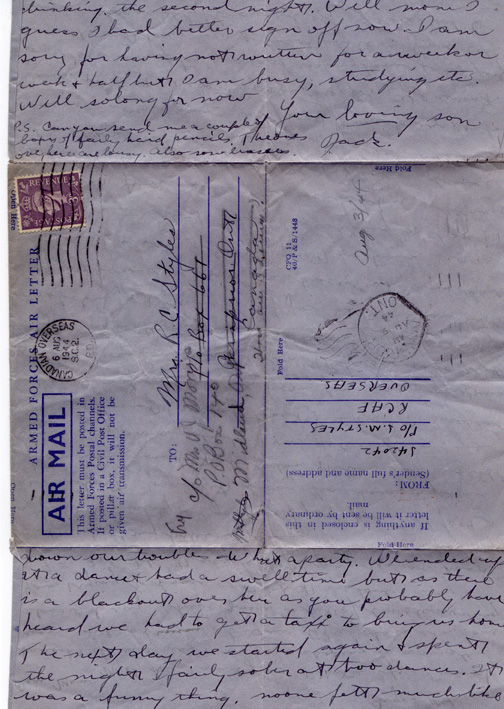 thinking, the second night. Will mom I
guess I had better sign off now. I am
sorry for having not written for a week or
week & half but I am busy, studying etc.
Will so long for now
Your loving son
Jack.
P.S. Can you send me a couple of
of fairly hard pencils, the ones
over here are lousy. Also some erasers.
Open Here
POSTAGE REVENUE
3D
ARMED FORCES AIR LETTER
CANADIAN OVERSEAS
6 AUG
1944
S.C.2.
P.O.
AIR MAIL
This letter must be posted in
Armed Forces Postal channels.
If posted in a Civil Post Office
or pillar box, it will not be
given air transmission.
TO:
Mrs R C Styles
c/o
P O Box 661
P O Box 140
Midland, Ont
Arnprior Ont
Canada
Fold Here
Aug 3/44
CPO 11
40/P & S/1448
Fold Here
ONT.
AU
44
OVERSEAS
RCAF
P/O L.M. STYLES
J42042
FROM:
(Sender's full name and address)
If anything is enclosed in this
letter it will be sent by ordinary
mail.
Fold Here
down our troubles. What a party. We ended up
at a dance & had a swell time but as there
is a blackout over here as you probably have
heard we had to get a taxi to bring us home
The next day we started again & spent
the night fairly sober at two dances. It
was a funny thing, no one felt much like